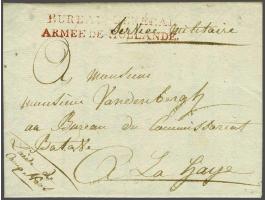 BUREAU GENERAL
ARMEE DE HOLLANDE.
Service Militaire
A Monsieur
monsieur Vandenbergh
au Bureau du Commissariat
Batave
A La Haye